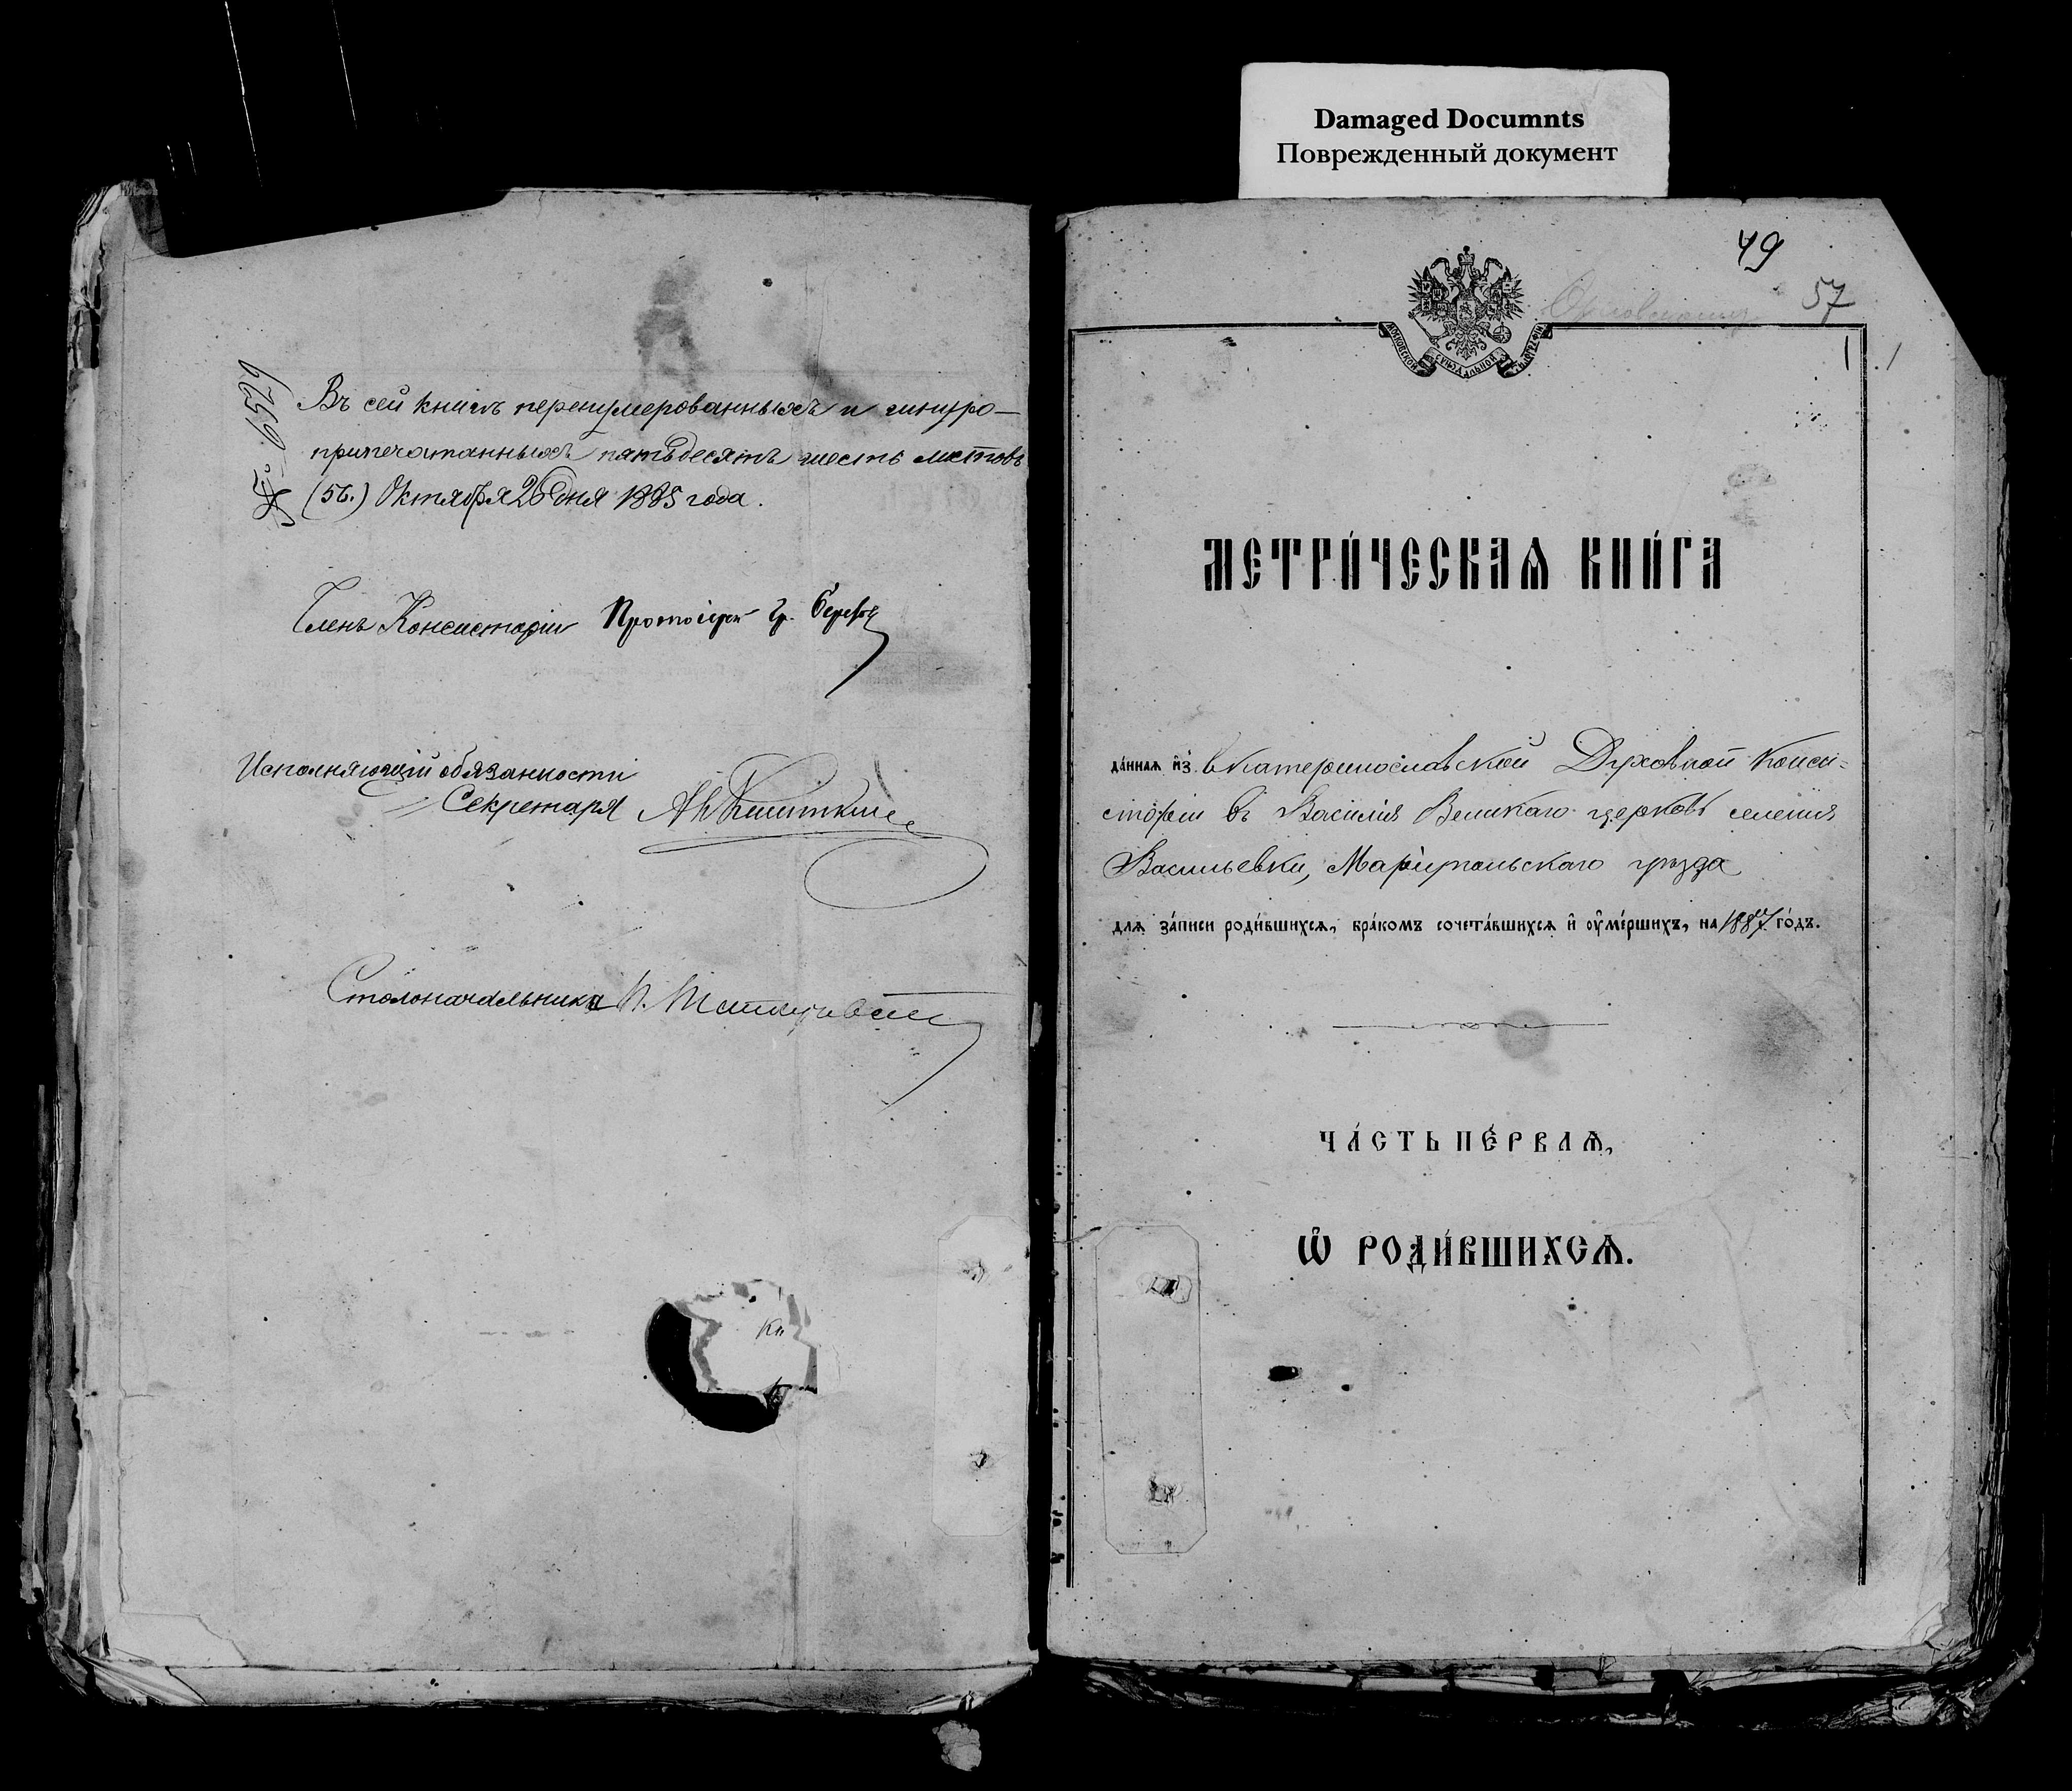 Damaged Documnts
Поврежденный документ
№ 6529
Въ сей книгѣ перенумерованныхъ и шнуро-
припечатанныхъ пятьдесятъ шесть листовъ
(56.) Октября 26 дня 1885 года.
Членъ Консисторіи Протоіерей Гр.
Исполняющій обязанности
Секретаря
Столоначальника
49
57
1
МЕТРИ́ЧЕСКАѦ КНИ́ГА
да́ннаѧ и҆з̾ Екатеринославской Духовной Конси-
сторіи въ Василія Великаго церковь селенія
Васильевки, Маріупольскаго уѣзда
длѧ за́писи роди́вшихсѧ, бра́комъ сочета́вшихсѧ и҆ ѹ҆ме́ршихъ, на 1887 го́дъ.
ЧА́СТЬ ПЕ́РВАѦ,
Ѽ РОДИ́ВШИХСѦ.